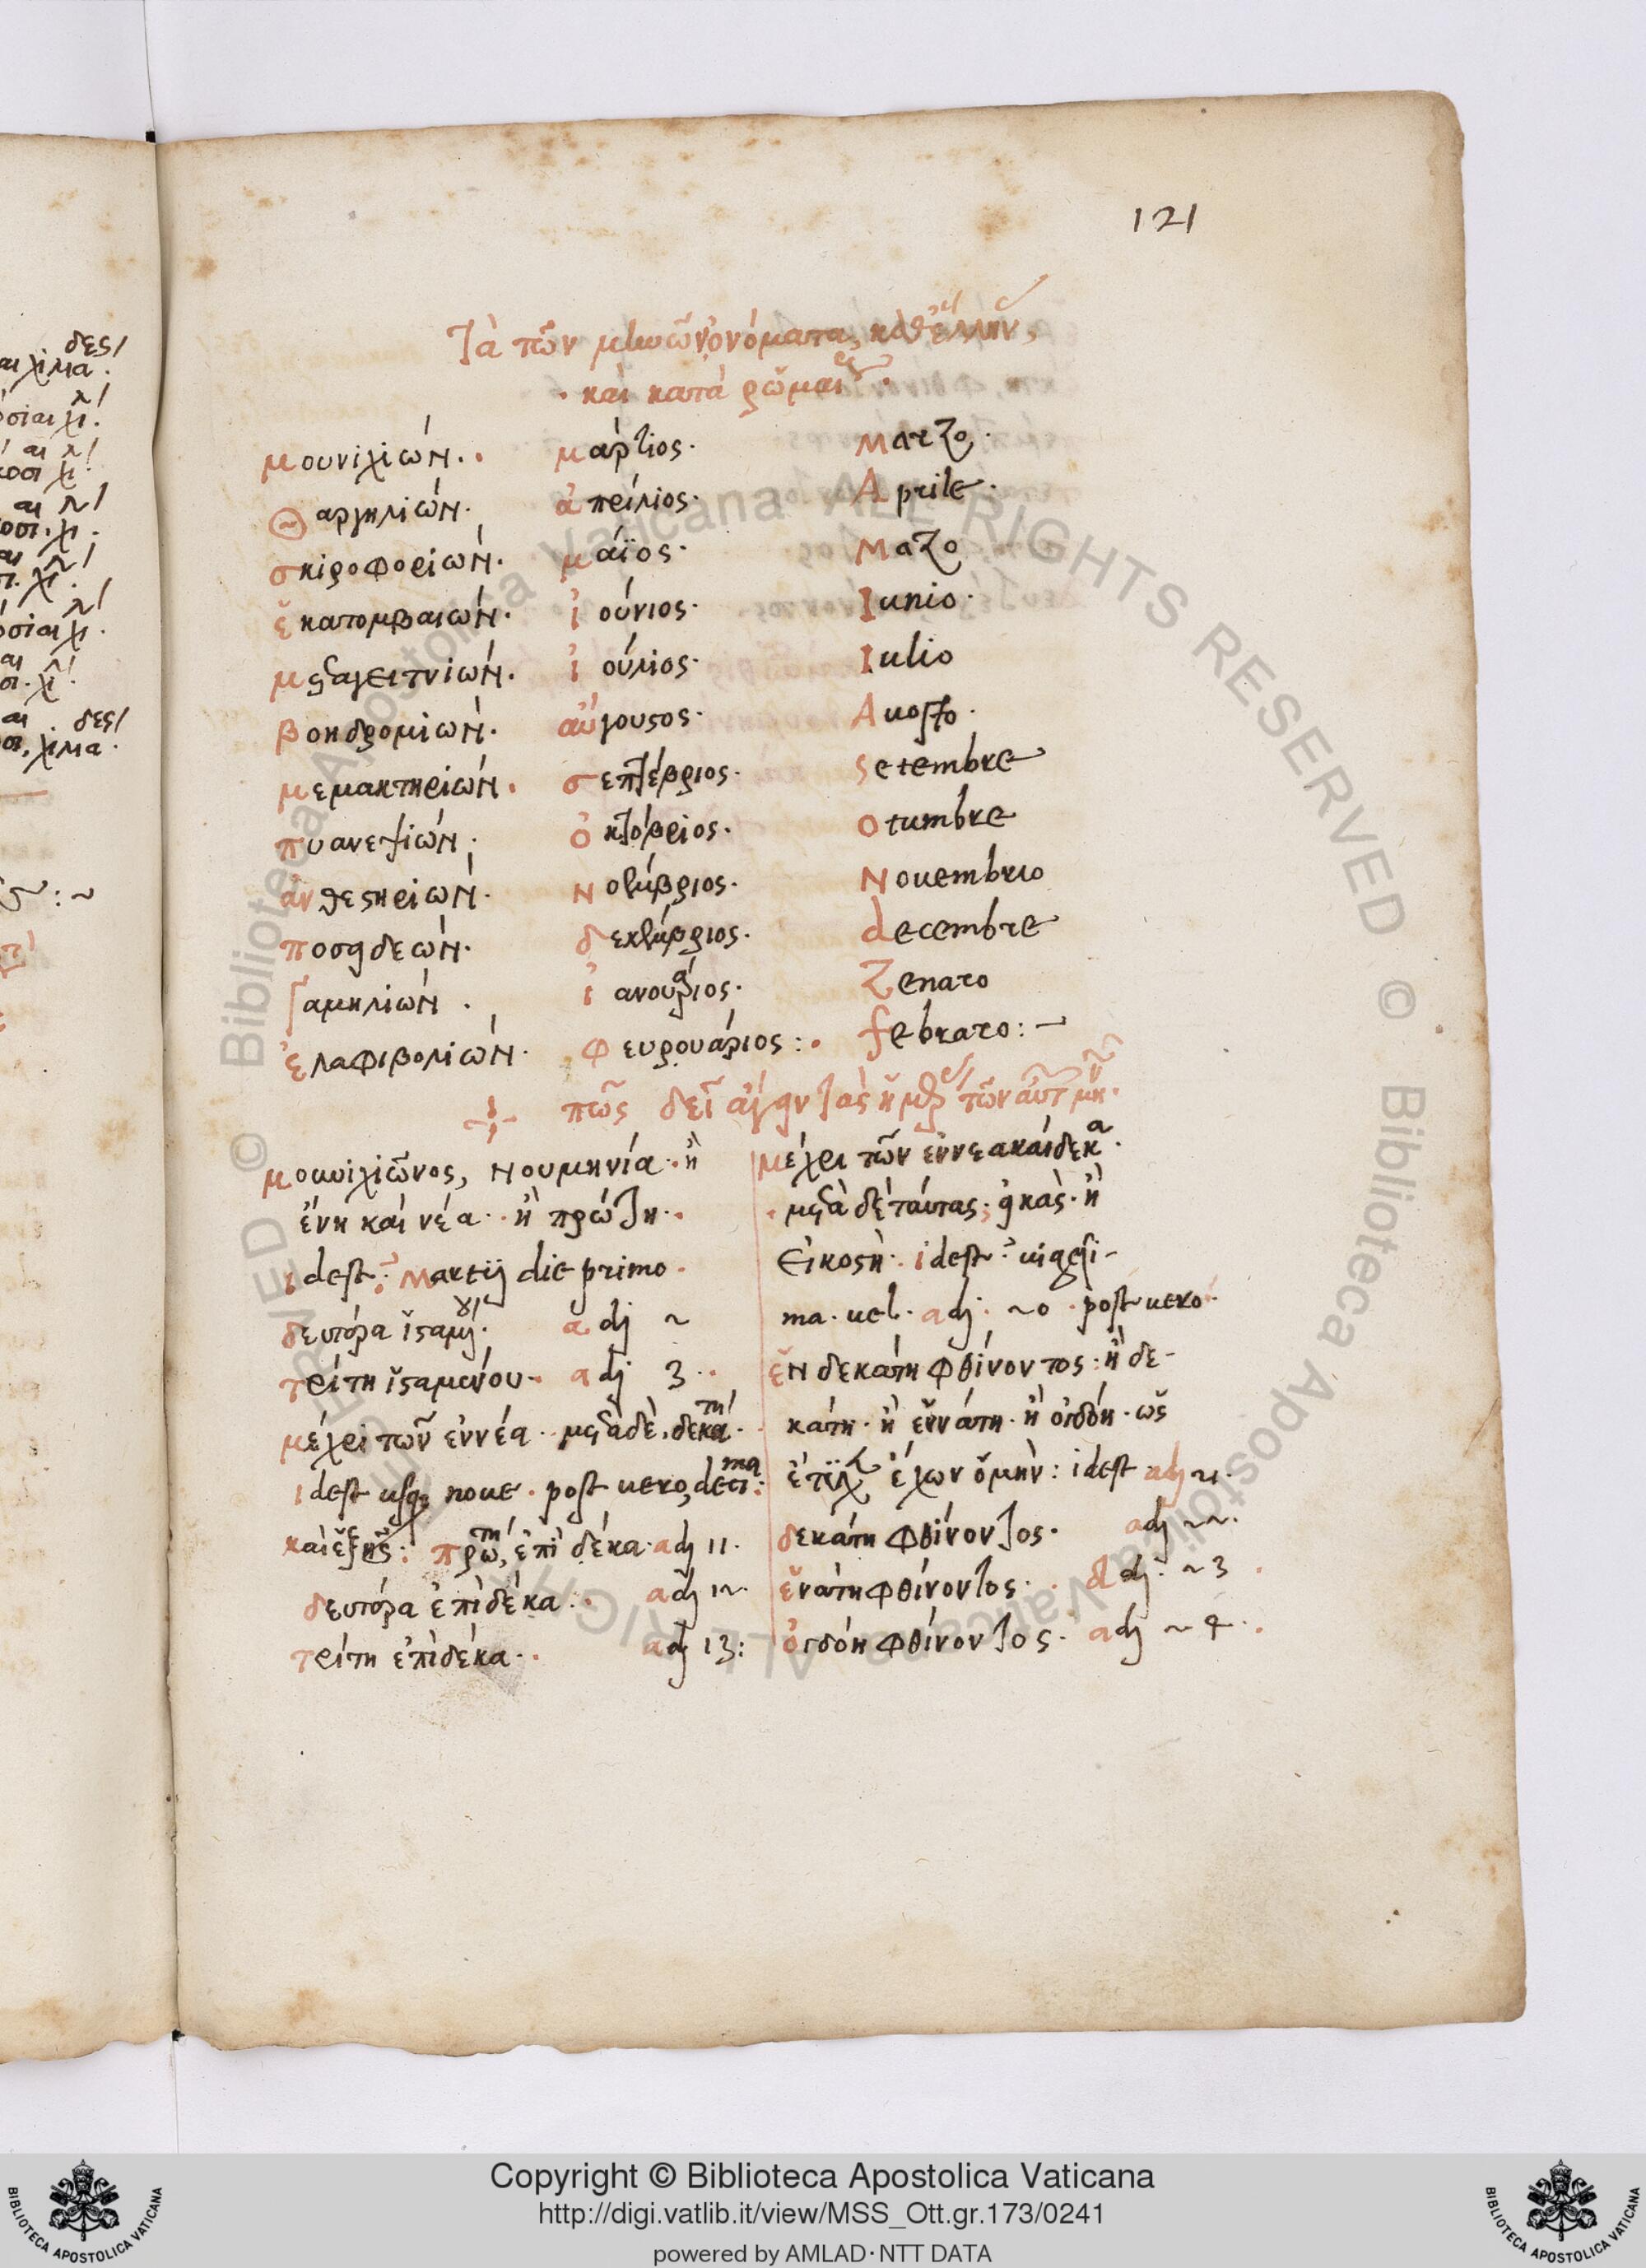 121
Τὰ τῶν μηνῶν ὀνόματα, καθ' ἕλλην,
· καὶ κατὰ ῥωμαί ·
μουνιχιών · · μάρτιος · Marzo ·
Θαργηλιών · ἀπρίλιος · Aprile ·
σκιροφοριών · μάϊος · Mazo
ἑκατομβαιών · ἰούνιος · Iunio ·
μεταγειτνιών · ἰούλιος · Iulio
βοηδρομιών · αὔγουστος · Auosto ·
μεμακτηριών · σεπτέβριος · Setembre
πυανεψιών · ὀκτόβριος · Otumbre
ἀνθεστηριών · νοέμβριος · Nouembrio
ποσειδεών · δεκέμβριος · decembre
Γαμηλιών · ἰανουάριος · Zenaro
ἐλαφιβολιών · φευρουάριος : · febraro : ~
πῶς δεῖ ἄγειν τὰς ἡμέρ τῶν αὐτ μη ·
μουνιχιῶνος, νουμηνία · ἢ
ἕνη καὶ νέα · · ἢ πρώτη · ·
idest : Martij die primo ·
δευτέρα ἱσταμέ · adj ~
τρίτη ἱσταμένου · adj 3 · ·
μέχρι τῶν ἐννέα · · μετὰ δὲ, δεκάτη ·
idest usq3 noue · post uero, decima :
καὶ ἑξῆς : πρώτη, ἐπὶ δέκα · adj 11 ·
δευτέρα ἐπὶ δέκα · · adj 1~
τρίτη ἐπὶ δέκα · · adj 13 :
μέχρι τῶν ἐννεακαίδεκα ·
· μετὰ δὲ ταύτας ; εἰκὰς · ἢ
εἰκοστὴ · idest : uigesi-
ma · uel · adj · ~0 · post uero ·
ἓν δεκάτη φθίνοντος : ἢ δε-
κάτη · ἢ ἐννάτη · ἢ ὀγδόη · ὡς
ἔχων ὁ μὴν : idest adj ~1 ·
δεκάτη φθίνοντος · adj ~~ ·
ἐνάτη φθίνοντος · · adj · ~3 ·
ὀγδόη φθίνοντος · adj ~4 · ·
Copyright © Biblioteca Apostolica Vaticana
http://digi.vatlib.it/view/MSS_Ott.gr.173/0241
powered by AMLAD·NTT DATA
BIBLIOTECA APOSTOLICA VATICANA
BIBLIOTECA APOSTOLICA VATICANA